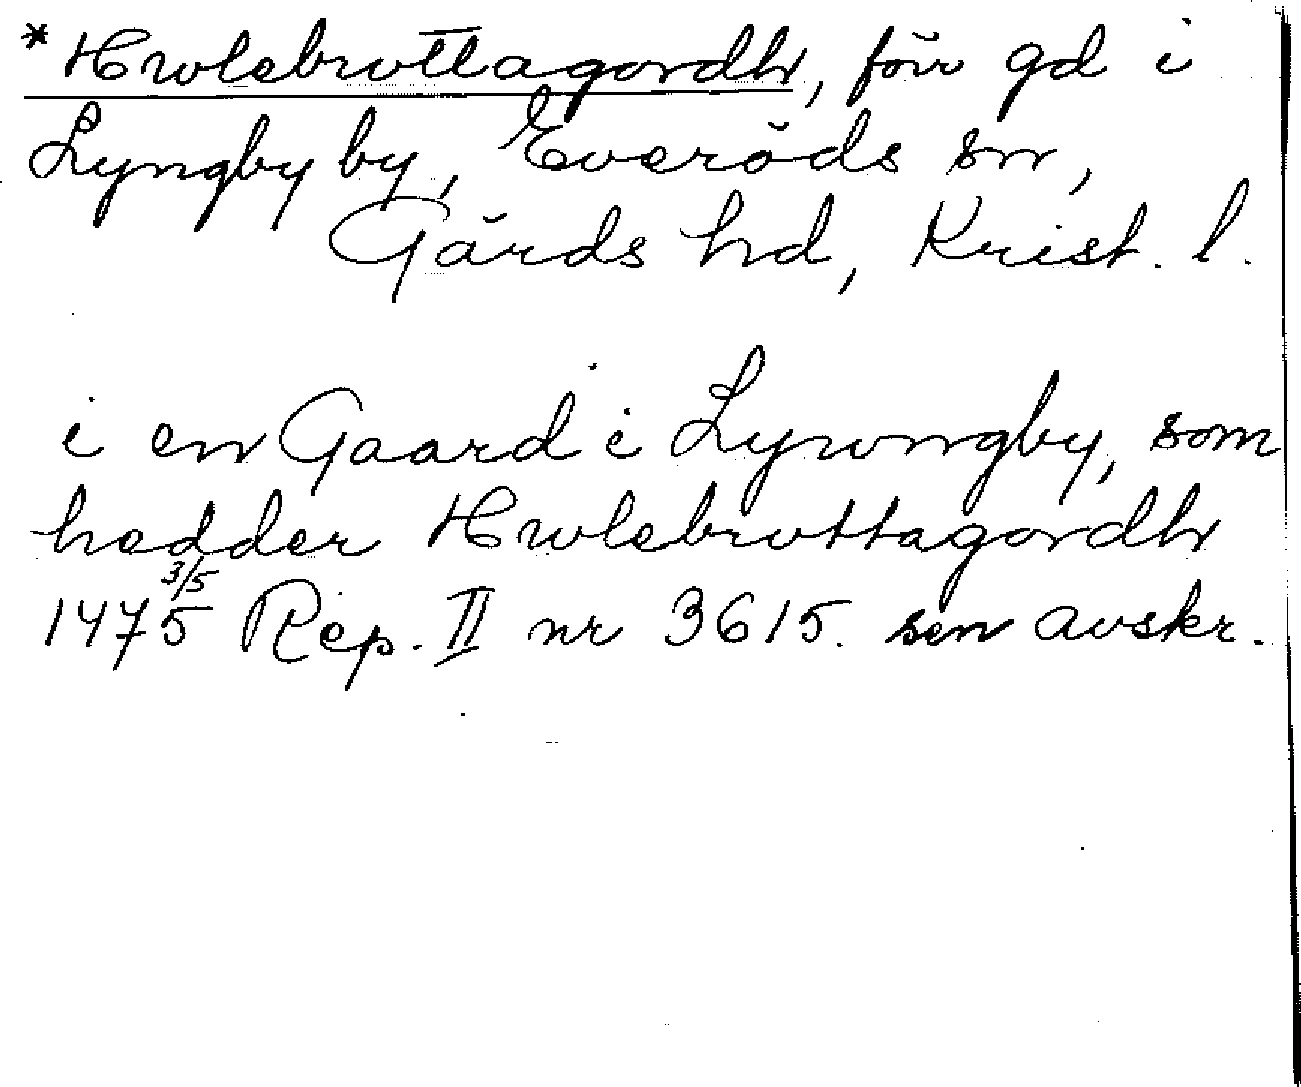 *Hwlebrvttagordh, förr gd i
Lyngby by, Everöds sn,
Gärds hd, Krist. l.
i en Gaard i Lywngby, som
hedder Hwlebrvttagordh
1475 3/5 Rep. II nr 3615. sen avskr.